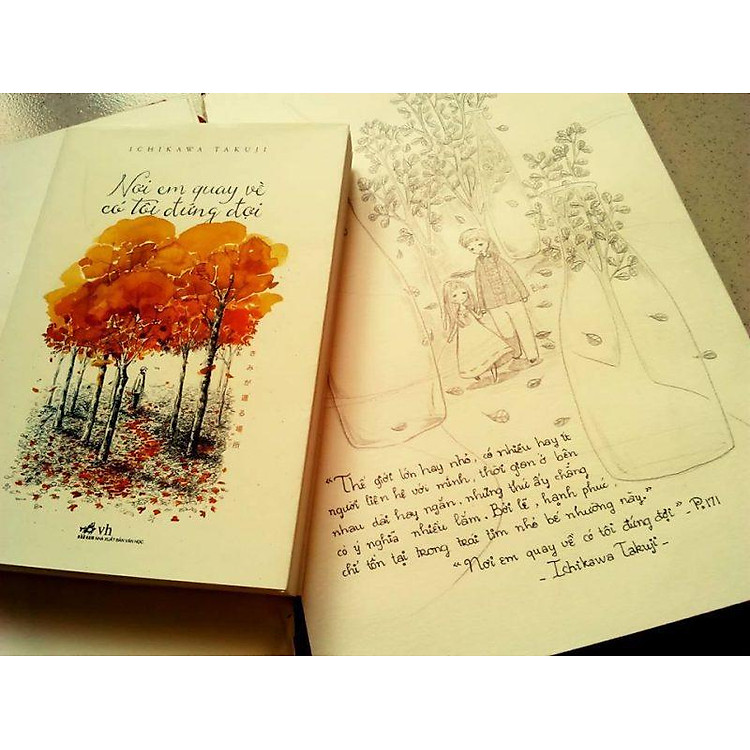 ICHIKAWA TAKUJI
Nơi em quay về
có tôi đứng đợi
きみが還る場所
vh
NHÃ NAM NHÀ XUẤT BẢN VĂN HỌC
“Thế giới lớn hay nhỏ, có nhiều hay ít
người liên hệ với mình, thời gian ở bên
nhau dài hay ngắn, những thứ ấy chẳng
có ý nghĩa nhiều lắm. Bởi lẽ, hạnh phúc
chỉ tồn tại trong trái tim nhỏ bé nhường này.”
“Nơi em quay về có tôi đứng đợi” - P.171
- Ichikawa Takuji -